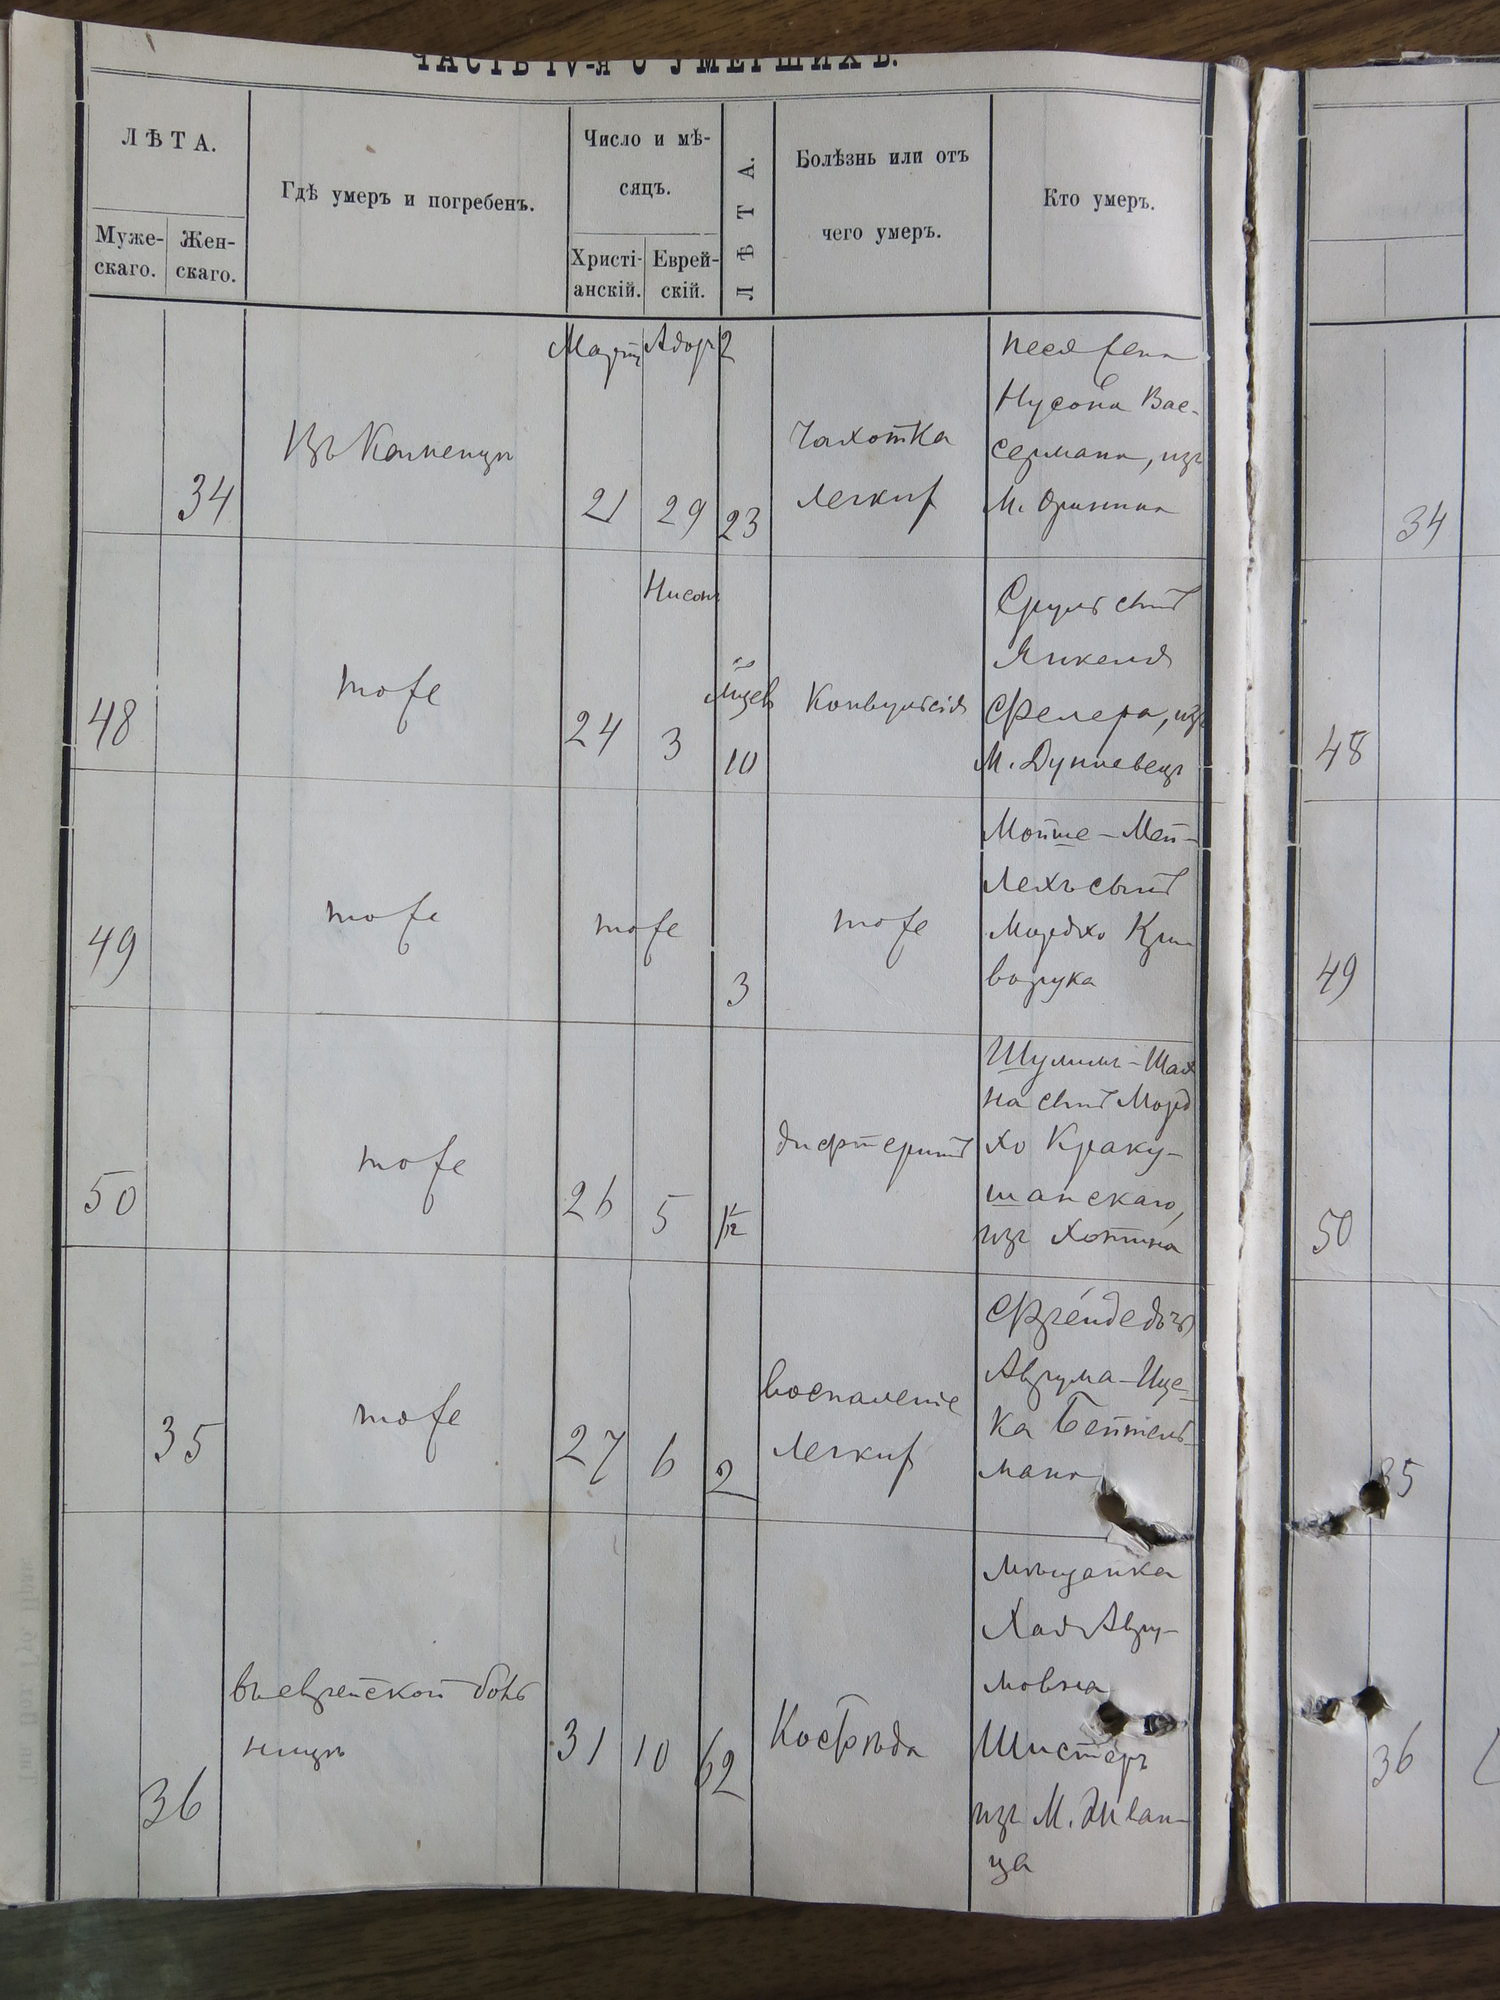 ЧАСТЬ IV-я О УМЕРШИХЪ.
ЛѢТА.
Муже-
скаго.
Жен-
скаго.
Гдѣ умеръ и погребенъ.
Число и мѣ-
сяцъ.
Христі-
анскій.
Еврей-
скій.
ЛѢТА.
Болѣзнь или отъ
чего умеръ.
Кто умеръ.
34
Въ Каменцѣ
Мартъ
21
Адоръ
29
23
Чахотка
легких
Песя жена
Нусона Вас-
сермана, изъ
М. Оринина
34
48
тоже
24
Нисонъ
3
мцев
10
Конвульсія
Сруль сынъ
Янкеля
Фелера, изъ
М. Дунаевецъ
48
49
тоже
тоже
3
тоже
Мойше-Мей-
лехъ сынъ
Мордхо Кри
ворука
49
50
тоже
26
5
дифтеритъ
Шулимъ-Шах
на сынъ Морд
хо Краку-
шанскаго,
изъ Хотина
50
35
тоже
27
6
2
воспаленіе
легких
Фрейде дочь
Аврума-Ице-
ка Бейтель-
мана
35
36
въ еврейской боль
ницѣ
31
10
62
Костоѣда
мѣщанка
Хая Авру-
мовна
Шистеръ
изъ М. Жван-
ца
36